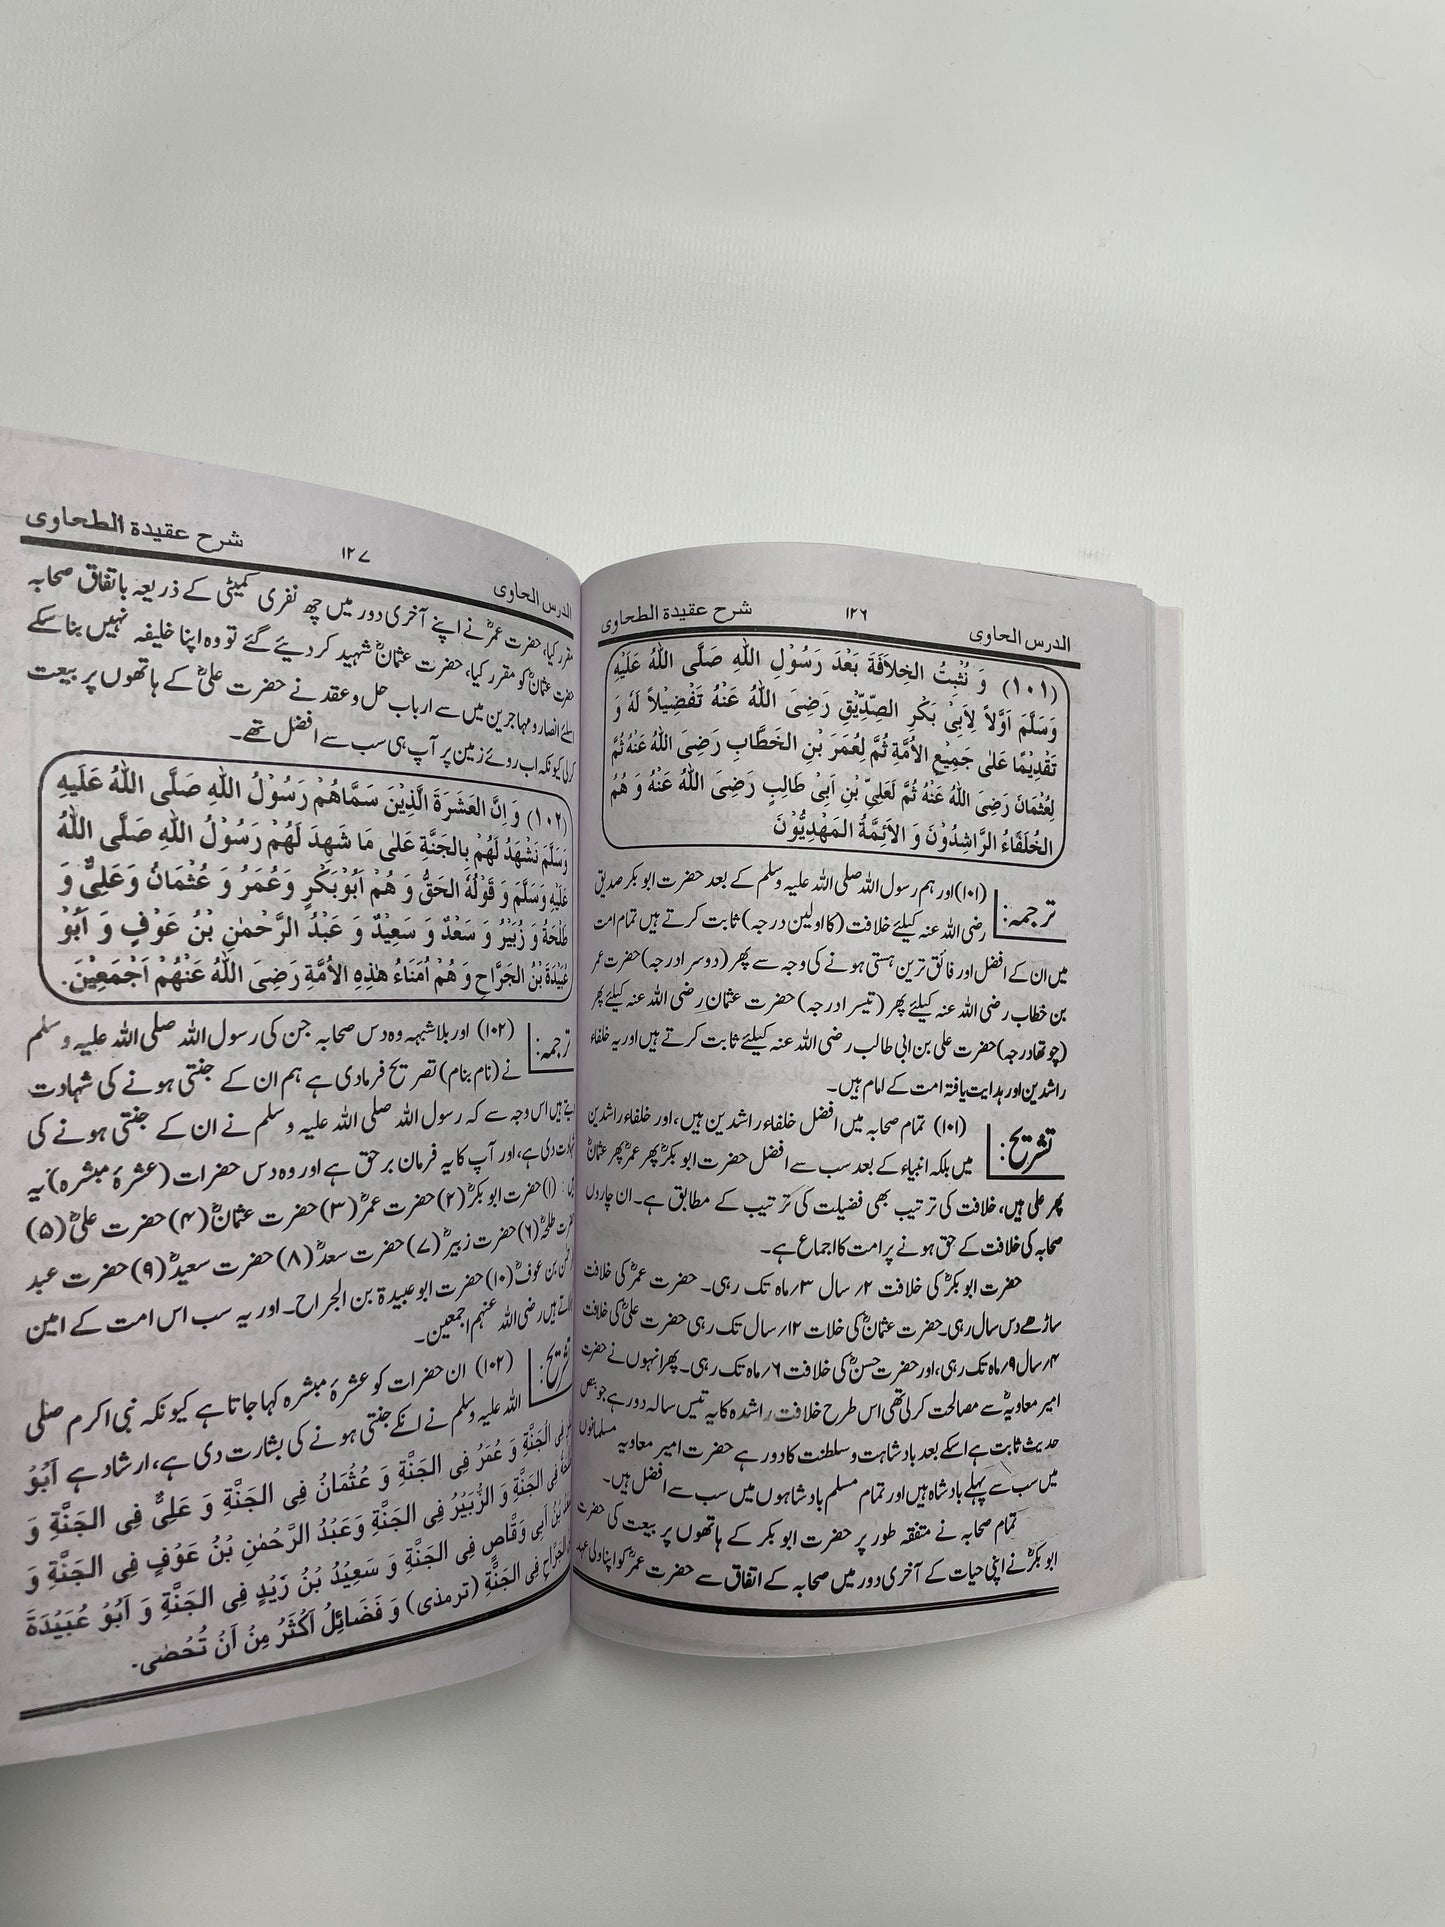 الدرس الحاوی ۱۲۶ شرح عقیدة الطحاوی
(۱۰۱) وَ نُثْبِتُ الخِلَافَةَ بَعْدَ رَسُوْلِ اللهِ صَلَّى اللهُ عَلَيْهِ
وَسَلَّمَ اَوَّلًا لِاَبِىْ بَكْرِ الصِّدِّيْقِ رَضِىَ اللهُ عَنْهُ تَفْضِيْلًا لَهُ وَ
تَقْدِيْمًا عَلٰى جَمِيْعِ الاُمَّةِ ثُمَّ لِعُمَرَ بْنِ الخَطَّابِ رَضِىَ اللهُ عَنْهُ ثُمَّ
لِعُثْمَانَ رَضِىَ اللهُ عَنْهُ ثُمَّ لَعَلِىِّ بْنِ اَبِىْ طَالِبٍ رَضِىَ اللهُ عَنْهُ وَ هُمُ
الخُلَفَاءُ الرَّاشِدُوْنَ وَ الاَئِمَّةُ المَهْدِيُّوْنَ
ترجمہ: (۱۰۱) اور ہم رسول اللہ صلی اللہ علیہ وسلم کے بعد حضرت ابو بکر صدیق
رضی اللہ عنہ کیلئے خلافت (کا اولین درجہ) ثابت کرتے ہیں تمام امت
میں ان کے افضل اور فائق ترین ہستی ہونے کی وجہ سے پھر (دوسرا درجہ) حضرت عمر
بن خطاب رضی اللہ عنہ کیلئے پھر (تیسرا درجہ) حضرت عثمان رضی اللہ عنہ کیلئے پھر
(چوتھا درجہ) حضرت علی بن ابی طالب رضی اللہ عنہ کیلئے ثابت کرتے ہیں اور یہ خلفاء
راشدین اور ہدایت یافتہ امت کے امام ہیں۔
تشریح: (۱۰۱) تمام صحابہ میں افضل خلفاء راشدین ہیں، اور خلفاء راشدین
میں بلکہ انبیاء کے بعد سب سے افضل حضرت ابو بکرؓ پھر عمرؓ پھر عثمانؓ
پھر علی ہیں، خلافت کی ترتیب بھی فضیلت کی ترتیب کے مطابق ہے۔ ان چاروں
صحابہ کی خلافت کے حق ہونے پر امت کا اجماع ہے۔
حضرت ابو بکرؓ کی خلافت ۲؍ سال ۳؍ماہ تک رہی۔ حضرت عمرؓ کی خلافت
ساڑھے دس سال رہی۔ حضرت عثمانؓ کی خلات ۱۲؍ سال تک رہی حضرت علیؓ کی خلافت
۴؍سال ۹؍ماہ تک رہی، اور حضرت حسنؓ کی خلافت ۶؍ماہ تک رہی۔ پھر انہوں نے حضرت
امیر معاویہؓ سے مصالحت کرلی تھی اس طرح خلافت راشدہ کا یہ تیس سالہ دور ہے جو بنص
حدیث ثابت ہے اسکے بعد بادشاہت و سلطنت کا دور ہے حضرت امیر معاویہ مسلمانوں
میں سب سے پہلے بادشاہ ہیں اور تمام مسلم بادشاہوں میں سب سے افضل ہیں۔
تمام صحابہ نے متفقہ طور پر حضرت ابو بکر کے ہاتھوں پر بیعت کی حضرت
ابو بکرؓ نے اپنی حیات کے آخری دور میں صحابہ کے اتفاق سے حضرت عمرؓ کو اپنا ولی عہد
الدرس الحاوی ۱۲۷ شرح عقیدة الطحاوی
مقرر کیا، حضرت عمرؓ نے اپنے آخری دور میں چھ نفری کمیٹی کے ذریعہ باتفاق صحابہ
حضرت عثمانؓ کو مقرر کیا، حضرت عثمانؓ شہید کر دیئے گئے تو وہ اپنا خلیفہ نہیں بنا سکے
اسلئے انصار و مہاجرین میں سے ارباب حل و عقد نے حضرت علیؓ کے ہاتھوں پر بیعت
کرلی کیونکہ اب روئے زمین پر آپ ہی سب سے افضل تھے۔
(۱۰۲) وَ اِنَّ العَشَرَةَ الَّذِيْنَ سَمَّاهُمْ رَسُوْلُ اللهِ صَلَّى اللهُ عَلَيْهِ
وَسَلَّمَ نَشْهَدُ لَهُمْ بِالجَنَّةِ عَلٰى مَا شَهِدَ لَهُمْ رَسُوْلُ اللهِ صَلَّى اللهُ
عَلَيْهِ وَسَلَّمَ وَ قَوْلُهُ الحَقُّ وَ هُمْ اَبُوْبَكْرٍ وَعُمَرُ وَ عُثْمَانُ وَعَلِىٌّ وَ
طَلْحَةُ وَ زُبَيْرُ وَ سَعْدٌ وَ سَعِيْدٌ وَ عَبْدُ الرَّحْمٰنِ بْنُ عَوْفٍ وَ اَبُوْ
عُبَيْدَةَ بْنُ الجَرَّاحِ وَ هُمْ اُمَنَاءُ هٰذِهِ الاُمَّةِ رَضِىَ اللهُ عَنْهُمْ اَجْمَعِيْنَ.
ترجمہ: (۱۰۲) اور بلا شبہہ وہ دس صحابہ جن کی رسول اللہ صلی اللہ علیہ وسلم
نے (نام بنام) تصریح فرمادی ہے ہم ان کے جنتی ہونے کی شہادت
دیتے ہیں اس وجہ سے کہ رسول اللہ صلی اللہ علیہ وسلم نے ان کے جنتی ہونے کی
شہادت دی ہے، اور آپ کا یہ فرمان برحق ہے اور وہ دس حضرات (عشرۂ مبشرہ) یہ
ہیں: (۱) حضرت ابو بکرؓ (۲) حضرت عمرؓ (۳) حضرت عثمانؓ (۴) حضرت علیؓ (۵)
حضرت طلحہؓ (۶) حضرت زبیرؓ (۷) حضرت سعدؓ (۸) حضرت سعیدؓ (۹) حضرت عبد
بن عوفؓ (۱۰) حضرت ابوعبیدة بن الجراح۔ اور یہ سب اس امت کے امین
ہیں رضی اللہ عنہم اجمعین۔
تشریح: (۱۰۲) ان حضرات کو عشرۂ مبشرہ کہا جاتا ہے کیونکہ نبی اکرم صلی
اللہ علیہ وسلم نے انکے جنتی ہونے کی بشارت دی ہے، ارشاد ہے اَبُوْ
فِى الْجَنَّةِ وَ عُمَرُ فِى الجَنَّةِ وَ عُثْمَانُ فِى الجَنَّةِ وَ عَلِىٌّ فِى الجَنَّةِ وَ
فِى الجَنَّةِ وَ الزُّبَيْرُ فِى الجَنَّةِ وَعَبْدُ الرَّحْمٰنِ بْنُ عَوْفٍ فِى الجَنَّةِ وَ
بْنُ اَبِى وَقَّاصٍ فِى الجَنَّةِ وَ سَعِيْدُ بْنُ زَيْدٍ فِى الجَنَّةِ وَ اَبُوْ عُبَيْدَةَ
الجَرَّاحِ فِى الجَنَّةِ (ترمذی) وَ فَضَائِلُ اَكْثَرُ مِنْ اَنْ تُحْصٰى.